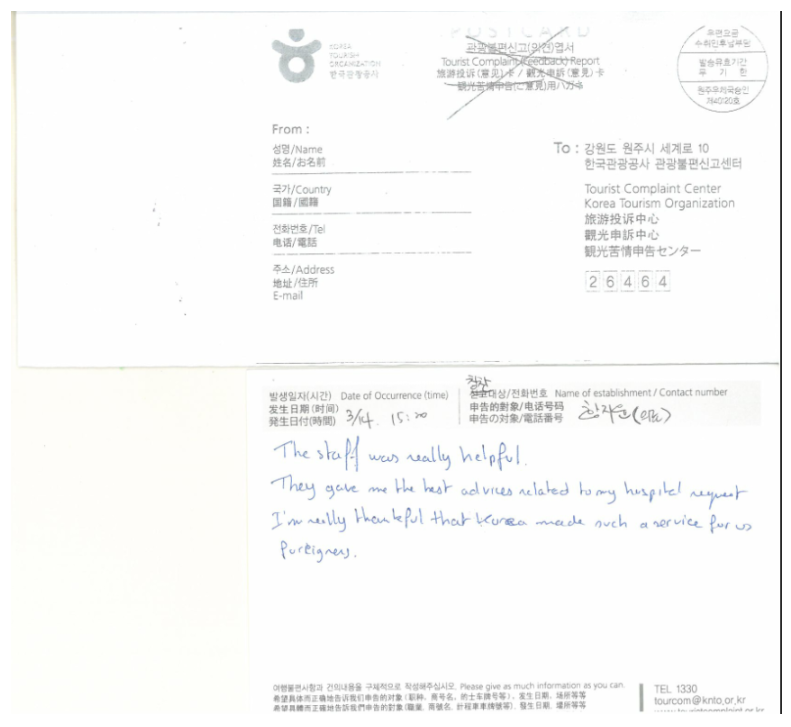 POSTCARD
KOREA
TOURISM
ORGANIZATION
한국관광공사
관광불편신고(의견)엽서
Tourist Complaint (Feedback) Report
旅游投诉(意见)卡 / 觀光申訴(意見)卡
観光苦情申告(ご意見)用ハガキ
우편요금
수취인후납부담
발송유효기간
무 기 한
원주우체국승인
제40120호
From :
성명/Name
姓名/お名前
국가/Country
国籍/國籍
전화번호/Tel
电话/電話
주소/Address
地址/住所
E-mail
To : 강원도 원주시 세계로 10
한국관광공사 관광불편신고센터
Tourist Complaint Center
Korea Tourism Organization
旅游投诉中心
觀光申訴中心
観光苦情申告センター
26464
발생일자(시간) Date of Occurrence (time)
发生日期(时间)
発生日付(時間) 3/14. 15:20
칭찬
신고대상/전화번호 Name of establishment / Contact number
申告的對象/电话号码
申告の対象/電話番号
The staff was really helpful.
They gave me the best advices related to my hospital request
I'm really thankful that Korea made such a service for us
foreigners.
여행불편사항과 건의내용을 구체적으로 작성해주십시오. Please give as much information as you can.
希望具体而正确地告诉我们申告的对象(职种、商号名、的士车牌号等)、发生日期、场所等等
希望具體而正確地告訴我們申告的對象(職業、商號名、計程車車牌號等)、發生日期、場所等等
TEL 1330
tourcom@knto.or.kr